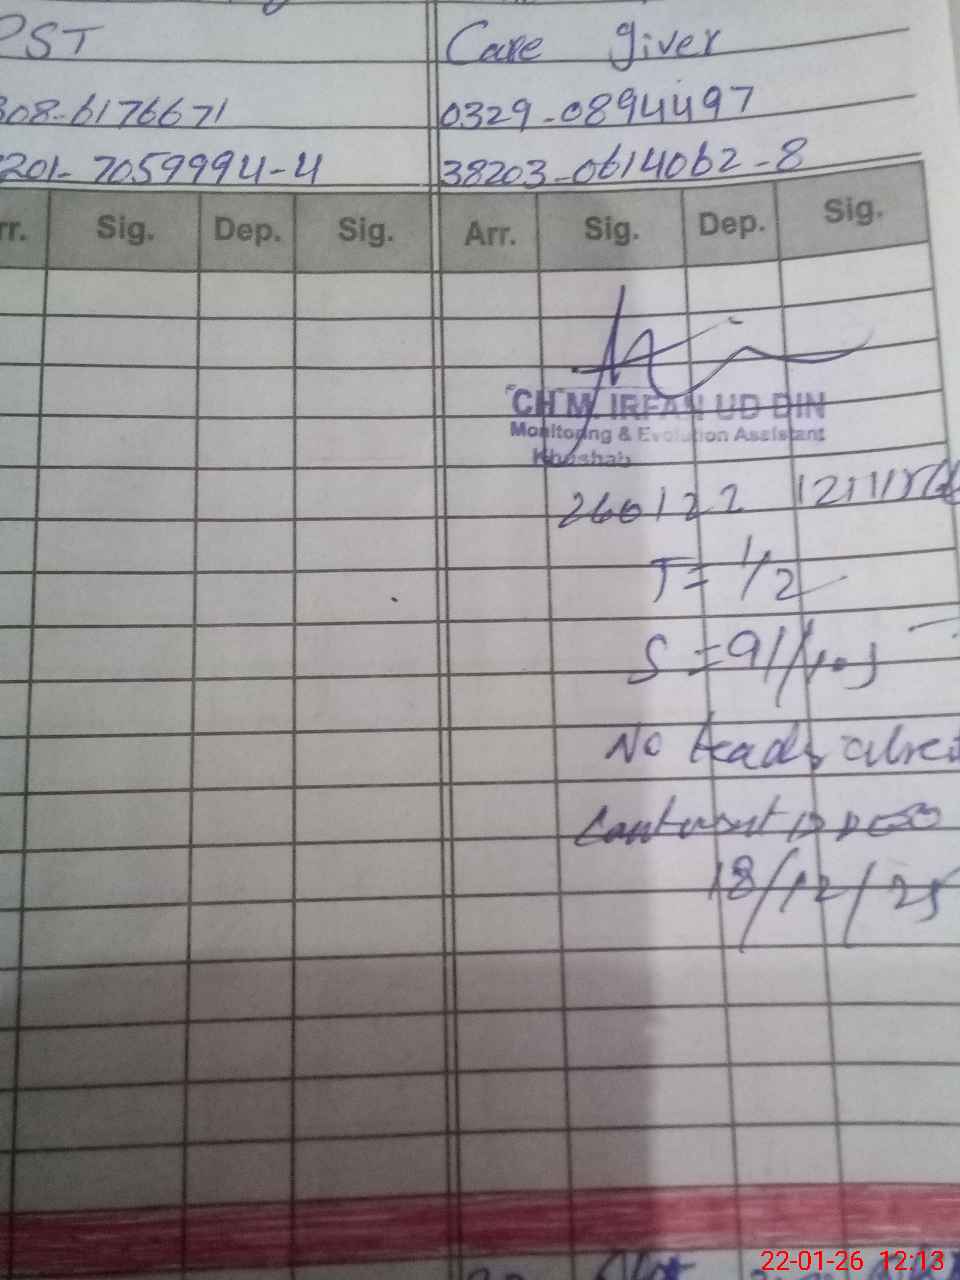 PST Care giver
308-6176671 0329-0894497
201-7059994-4 38203-0614062-8
rr. Sig. Dep. Sig. Arr. Sig. Dep. Sig.
CH M. IRFAN UD DIN
Monitoring & Evolution Assistant
Khushab
T = 1/2
S = 91/
No
18/12/25
22-01-26 12:13